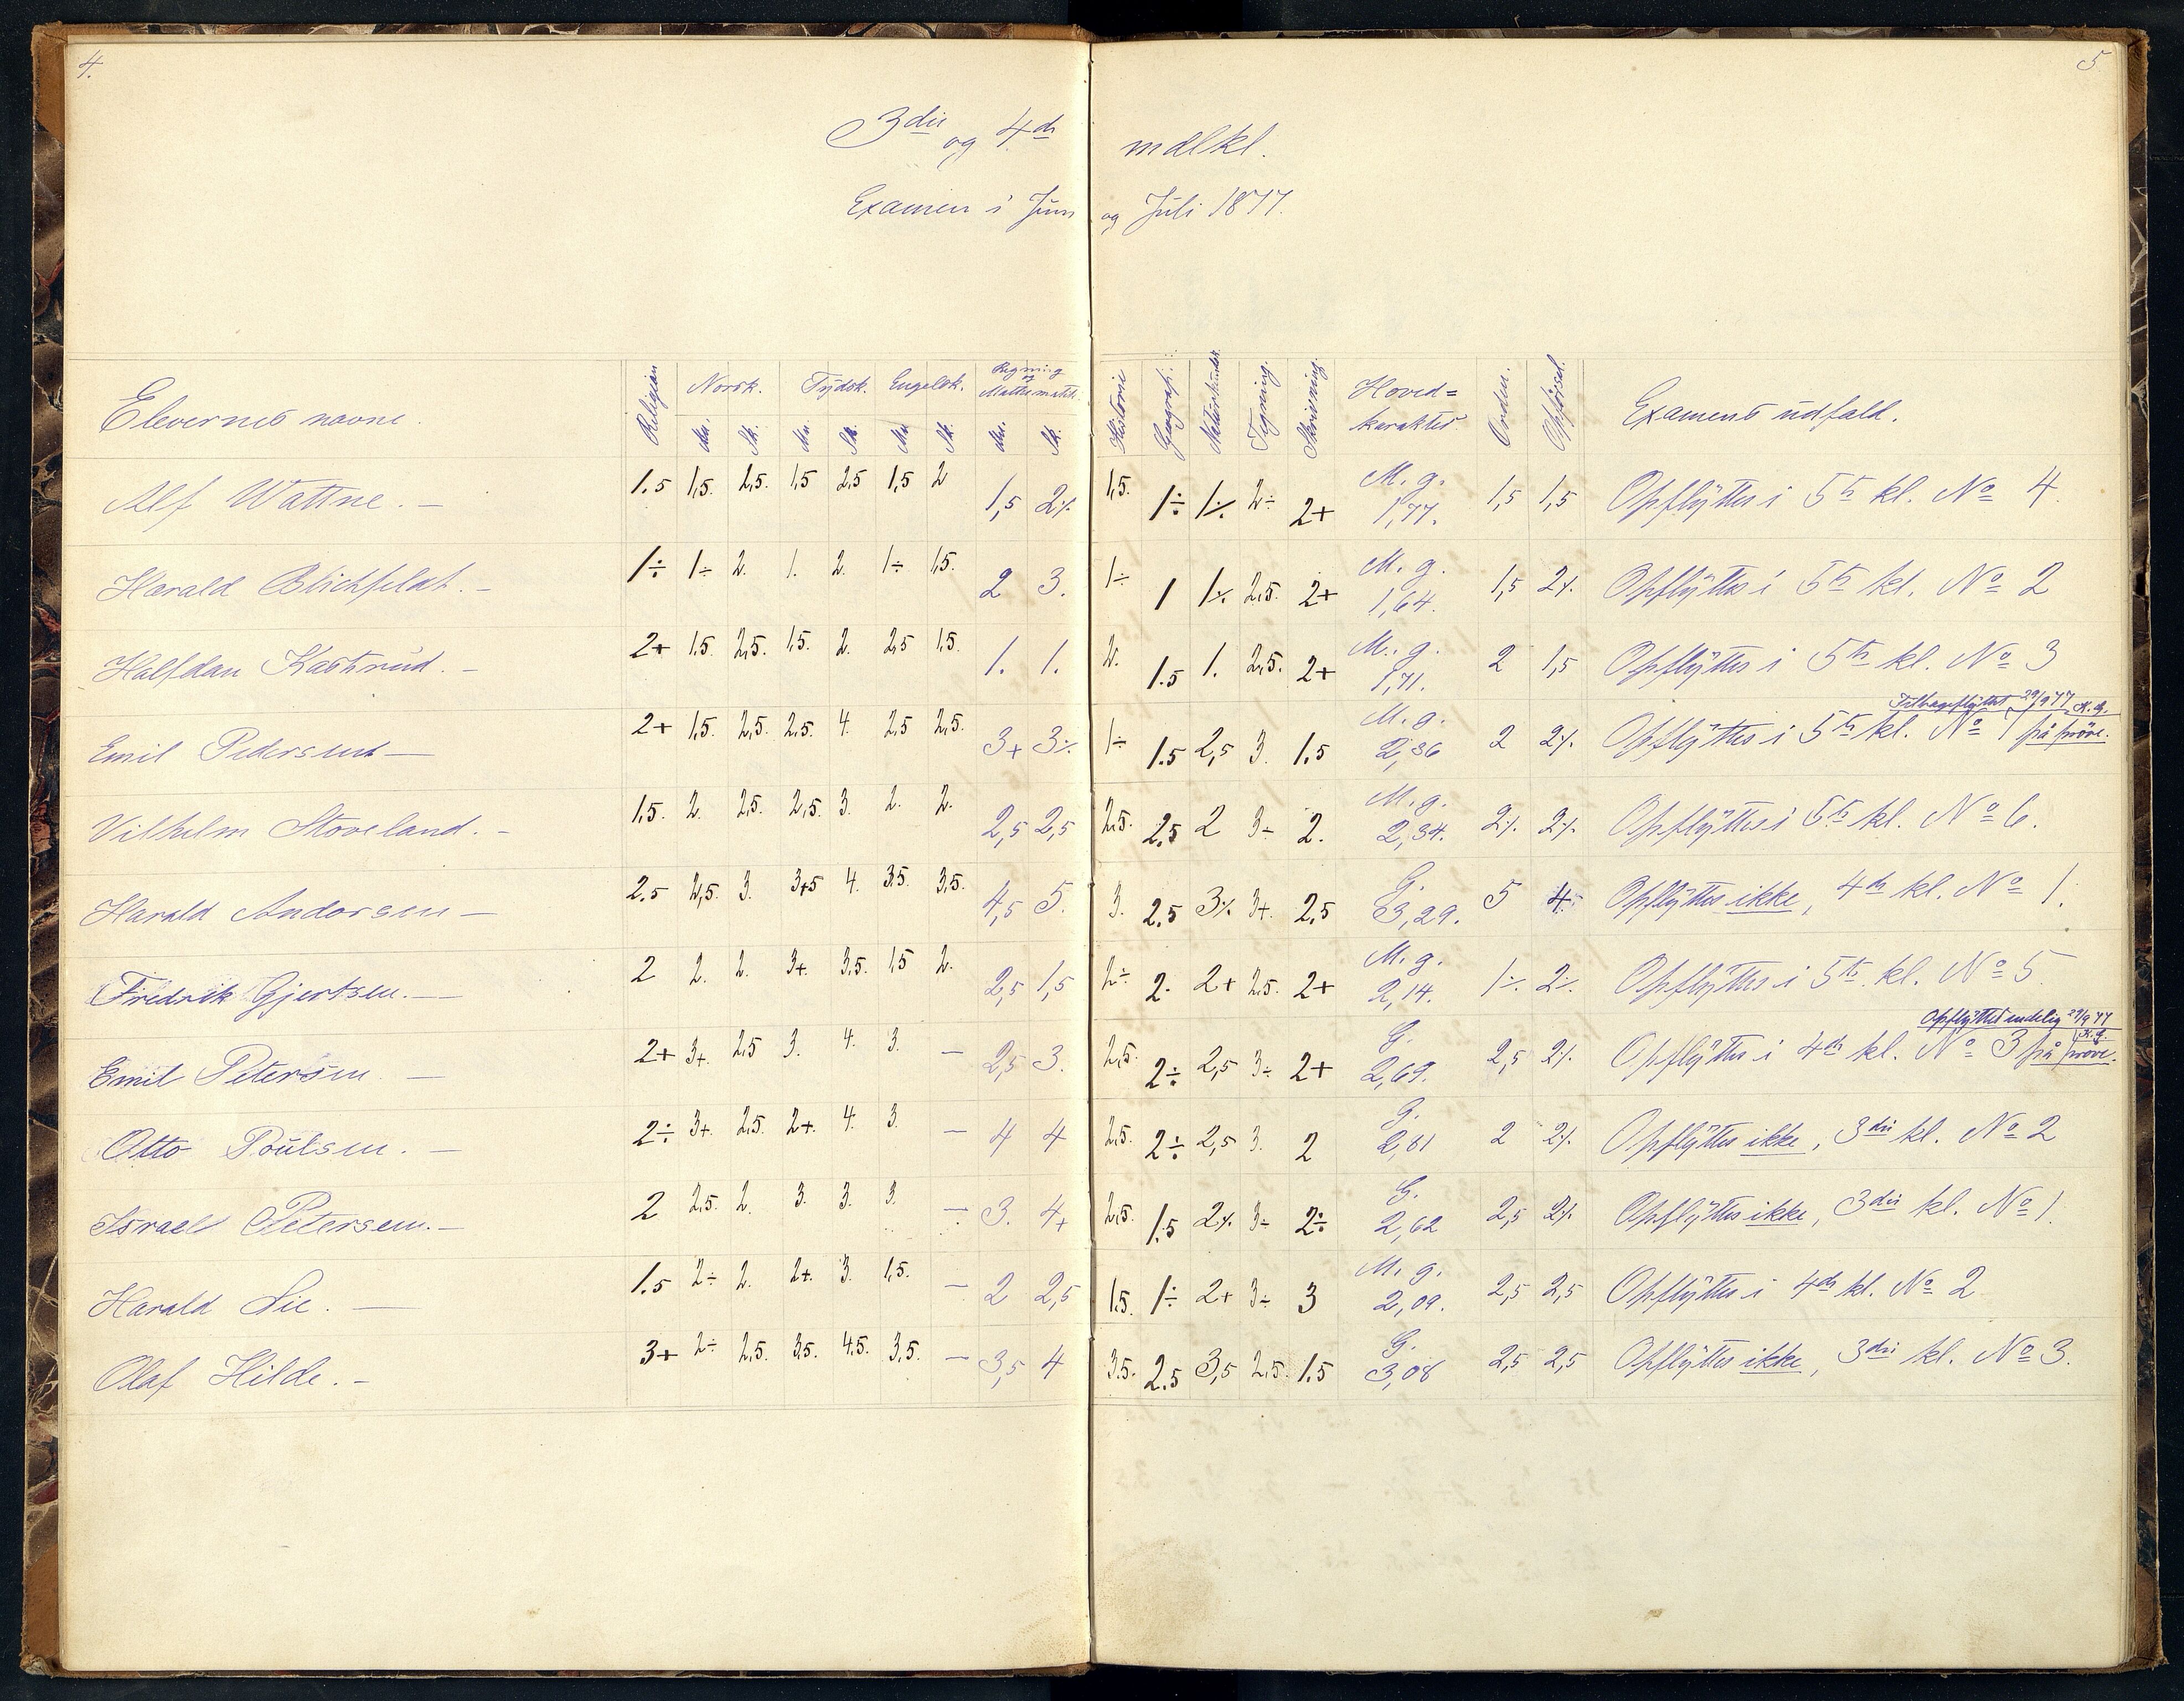 4.
5
3die og 4de mdlkl.
Examen i Juni og Juli 1877.
Elevernes navne. Religion Norsk. Tydsk. Engelsk. Regning og Mathematik. Historie Geografi. Naturkundsk. Tegning. Skrivning. Hoved= karakter. Orden. Opførsel. Examens udfald.
Mu. Sk. Mu. Sk. Mu. Sk. Mu. Sk.
Alf Wattne. — 1.5 1,5. 2,5. 1,5 2,5 1,5 2 1,5 2% 1,5. 1÷ 1% 2÷ 2+ M. g. 1,77. 1,5 1,5 Opflyttes i 5te kl. No 4.
Harald Blichfeldt. — 1÷ 1÷ 2. 1. 2. 1÷ 1,5. 2 3. 1÷ 1 1% 2,5. 2+ M. g. 1,64. 1,5 2% Opflyttes i 5te kl. No 2
Halfdan Kastrud. — 2+ 1.5. 2,5. 1.5. 2. 2,5 1.5. 1. 1. 2. 1.5 1. 2,5. 2+ M. g. 1,71. 2 1,5 Opflyttes i 5te kl. No 3
Tilbageflyttet 29/9 77 K.G.
Emil Pedersen — 2+ 1,5. 2,5. 2,5. 4. 2,5 2,5. 3+ 3% 1÷ 1.5 2,5 3. 1.5 M. g. 2,36 2 2% Opflyttes i 5te kl. No 7 på prøve.
Vilhelm Stoveland. — 1,5. 2. 2,5. 2,5. 3. 2. 2. 2,5 2,5 2,5. 2.5 2 3÷ 2. M. g. 2,34. 2% 2% Opflyttes i 5te kl. No 6.
Harald Andorsen — 2.5 2,5. 3. 3+5 4. 3.5. 3,5. 4,5 5. 3. 2.5 3% 3+. 2,5 G. 3,29. 5 4. Opflyttes ikke, 4de kl. No 1.
Fredrik Gjertsen. — 2 2. 2. 3+. 3,5. 1,5 2. 2,5 1,5 2÷ 2. 2+ 2,5. 2+ M. g. 2,14. 1% 2% Opflyttes i 5te kl. No 5
Opflyttet endelig 29/9 77 K.G.
Emil Petersen. — 2+ 3+. 2,5 3. 4. 3. — 2,5 3. 2,5. 2÷ 2,5 3÷ 2+ G. 2,69. 2,5 2% Opflyttes i 4de kl. No 3 på prøve.
Otto Poulsen. — 2÷ 3+. 2,5. 2+. 4. 3. — 4 4 2,5. 2÷ 2,5 3. 2 G. 2,81 2 2% Opflyttes ikke, 3die kl. No 2
Israel Petersen. — 2 2,5. 2. 3. 3. 3. — 3. 4+ 2,5. 1.5 2% 3÷ 2÷ G. 2,62 2,5 2% Opflyttes ikke, 3die kl. No 1.
Harald Lie. — 1.5 2÷ 2. 2+. 3. 1,5. — 2 2,5 1.5. 1÷ 2+ 3÷ 3 M. g. 2,09. 2,5 2,5 Opflyttes i 4de kl. No 2
Olaf Hilde. — 3+ 2÷ 2,5. 3,5. 4.5. 3,5. — 3,5 4 3.5. 2.5 3,5 2,5. 1.5 G. 3,08 2,5 2,5 Opflyttes ikke, 3die kl. No 3.